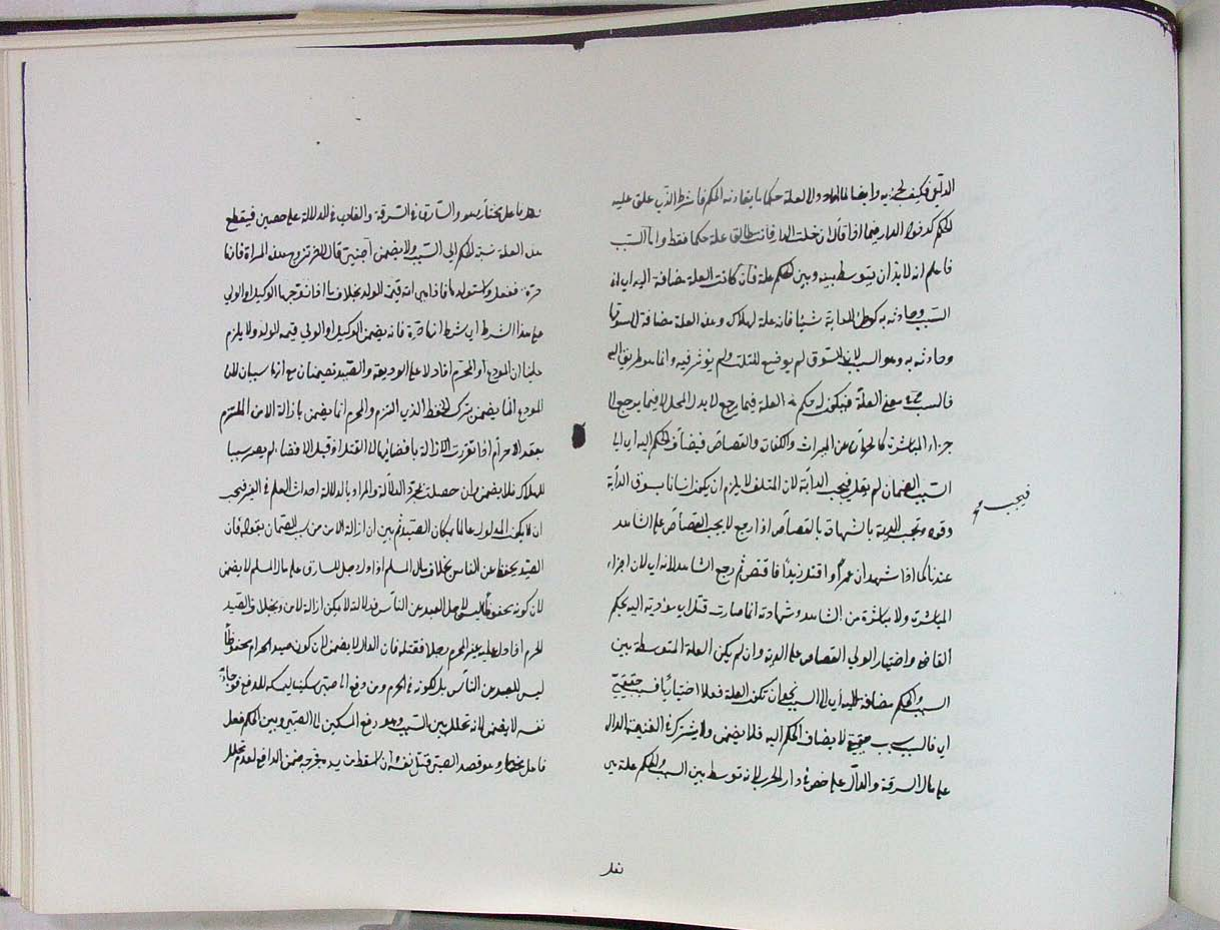 فكيف لجزيه وايضا العلة حكما ما يتفاد به الحكم فالشرط الذي علق عليه
الحكم كدخول الدار فيما اذا قال ان دخلت الدار فانت طالق علة حكما فقط واما السبب
فاعلم انه لا بد ان يتوسط بينه وبين الحكم علة فان كانت العلة مضافة اليه اي الى
السبب وحادثة به كوطئ الدابة شيئا فانه علة لهلاكه وهذه العلة مضافة الى سوقها
وحادثة به وهو السبب لان السوق لم يوضع للتلف ولم يؤثر فيه وانما هو طريق اليه
فالسبب ح معنى العلة فيكون له حكم العلة فيما يرجع الى بدل المحل لا فيما يرجع الى
جزاء المباشرة كالحرمان عن الميراث والكفارة والقصاص فيضاف الحكم اليه اي الى
السبب الضمان لم فيجب الدابة لان المتلف لا يلزم ان يكون انسانا بسوق الدابة
وقوده وتجب الدية بالشهادة بالقصاص اذا رجع لا يجب القصاص على الشاهد
عندنا كما اذا شهد ان عمرا قتل زيدا فاقتص ثم رجع الشاهد لانه اي لان جزاء
المباشرة ولا مباشرة من الشاهد وشهادته انما صارت قتلا اي مؤدية اليه بحكم
القاضي واختيار الولي القصاص على الدية وان لم يكن العلة المتوسطة بين
السبب والحكم مضافة اليه اي الى السبب نحو ان تكون العلة فعلا اختياريا فسبب حقيقي
اي فالسبب سبب حقيقي لا يضاف الحكم اليه فلا يضمن ولا يشترك في الغنيمة الدال
على مال السرقة والدال على حصن في دار الحرب لانه توسط بين السبب والحكم علة هي
فيجب
فعل فاعل مختار وهو السارق في السرقة والغازي في الدلالة على حصن فيقطع
هذه العلة نسبة الحكم الى السبب ولا يضمن اجنبي قال لاخر تزوج هذه المراة فانها
حرة ففعل واستولدها فاذا هي امة قيمة الولد بخلاف ما اذا زوجها الوكيل او الولي
على هذا الشرط اي شرط انها حرة فانه يضمن الوكيل او الولي قيمة الولد ولا يلزم
علينا ان المودع او المحرم اذا دلا على الوديعة والصيد يضمنان مع انهما سببان لان
المودع انما يضمن بترك الحفظ الذي التزم والمحرم انما يضمن بازالة الامن الملتزم
بعقد الاحرام اذا تقررت الازالة بافضائها الى القتل اذ قبل الافضاء لم يصر سببا
للهلاك فلا يضمن وان حصلت مجرد الدلالة والمراد بالدلالة احداث العلم في الغير فيجب
ان لا يكون المدلول عالما بمكان الصيد ثم بين ان ازالة الامن سبب الضمان بقوله فان
الصيد محفوظ عن الناس بخلاف مال المسلم اذا دل رجل السارق على مال المسلم لا يضمن
لان كونه محفوظا ليس لاجل البعد عن الناس فدلالته لا يكون ازالة الامن وبخلاف صيد
الحرم اذا دل عليه غير المحرم رجلا فقتله فان الدال لا يضمن لان كون صيد الحرم محفوظا
ليس للبعد عن الناس بل لكونه في الحرم ومن دفع الى صبي سكينا ليمسكه للدافع فوجاء به
نفسه لا يضمن لانه تخلل بين السبب وهو دفع السكين الى الصبي وبين الحكم فعل
فاعل مختار وهو قصد الصبي قتل نفسه وان سقط من يده فجرحه ضمن الدافع لعدم تخلل
فعل